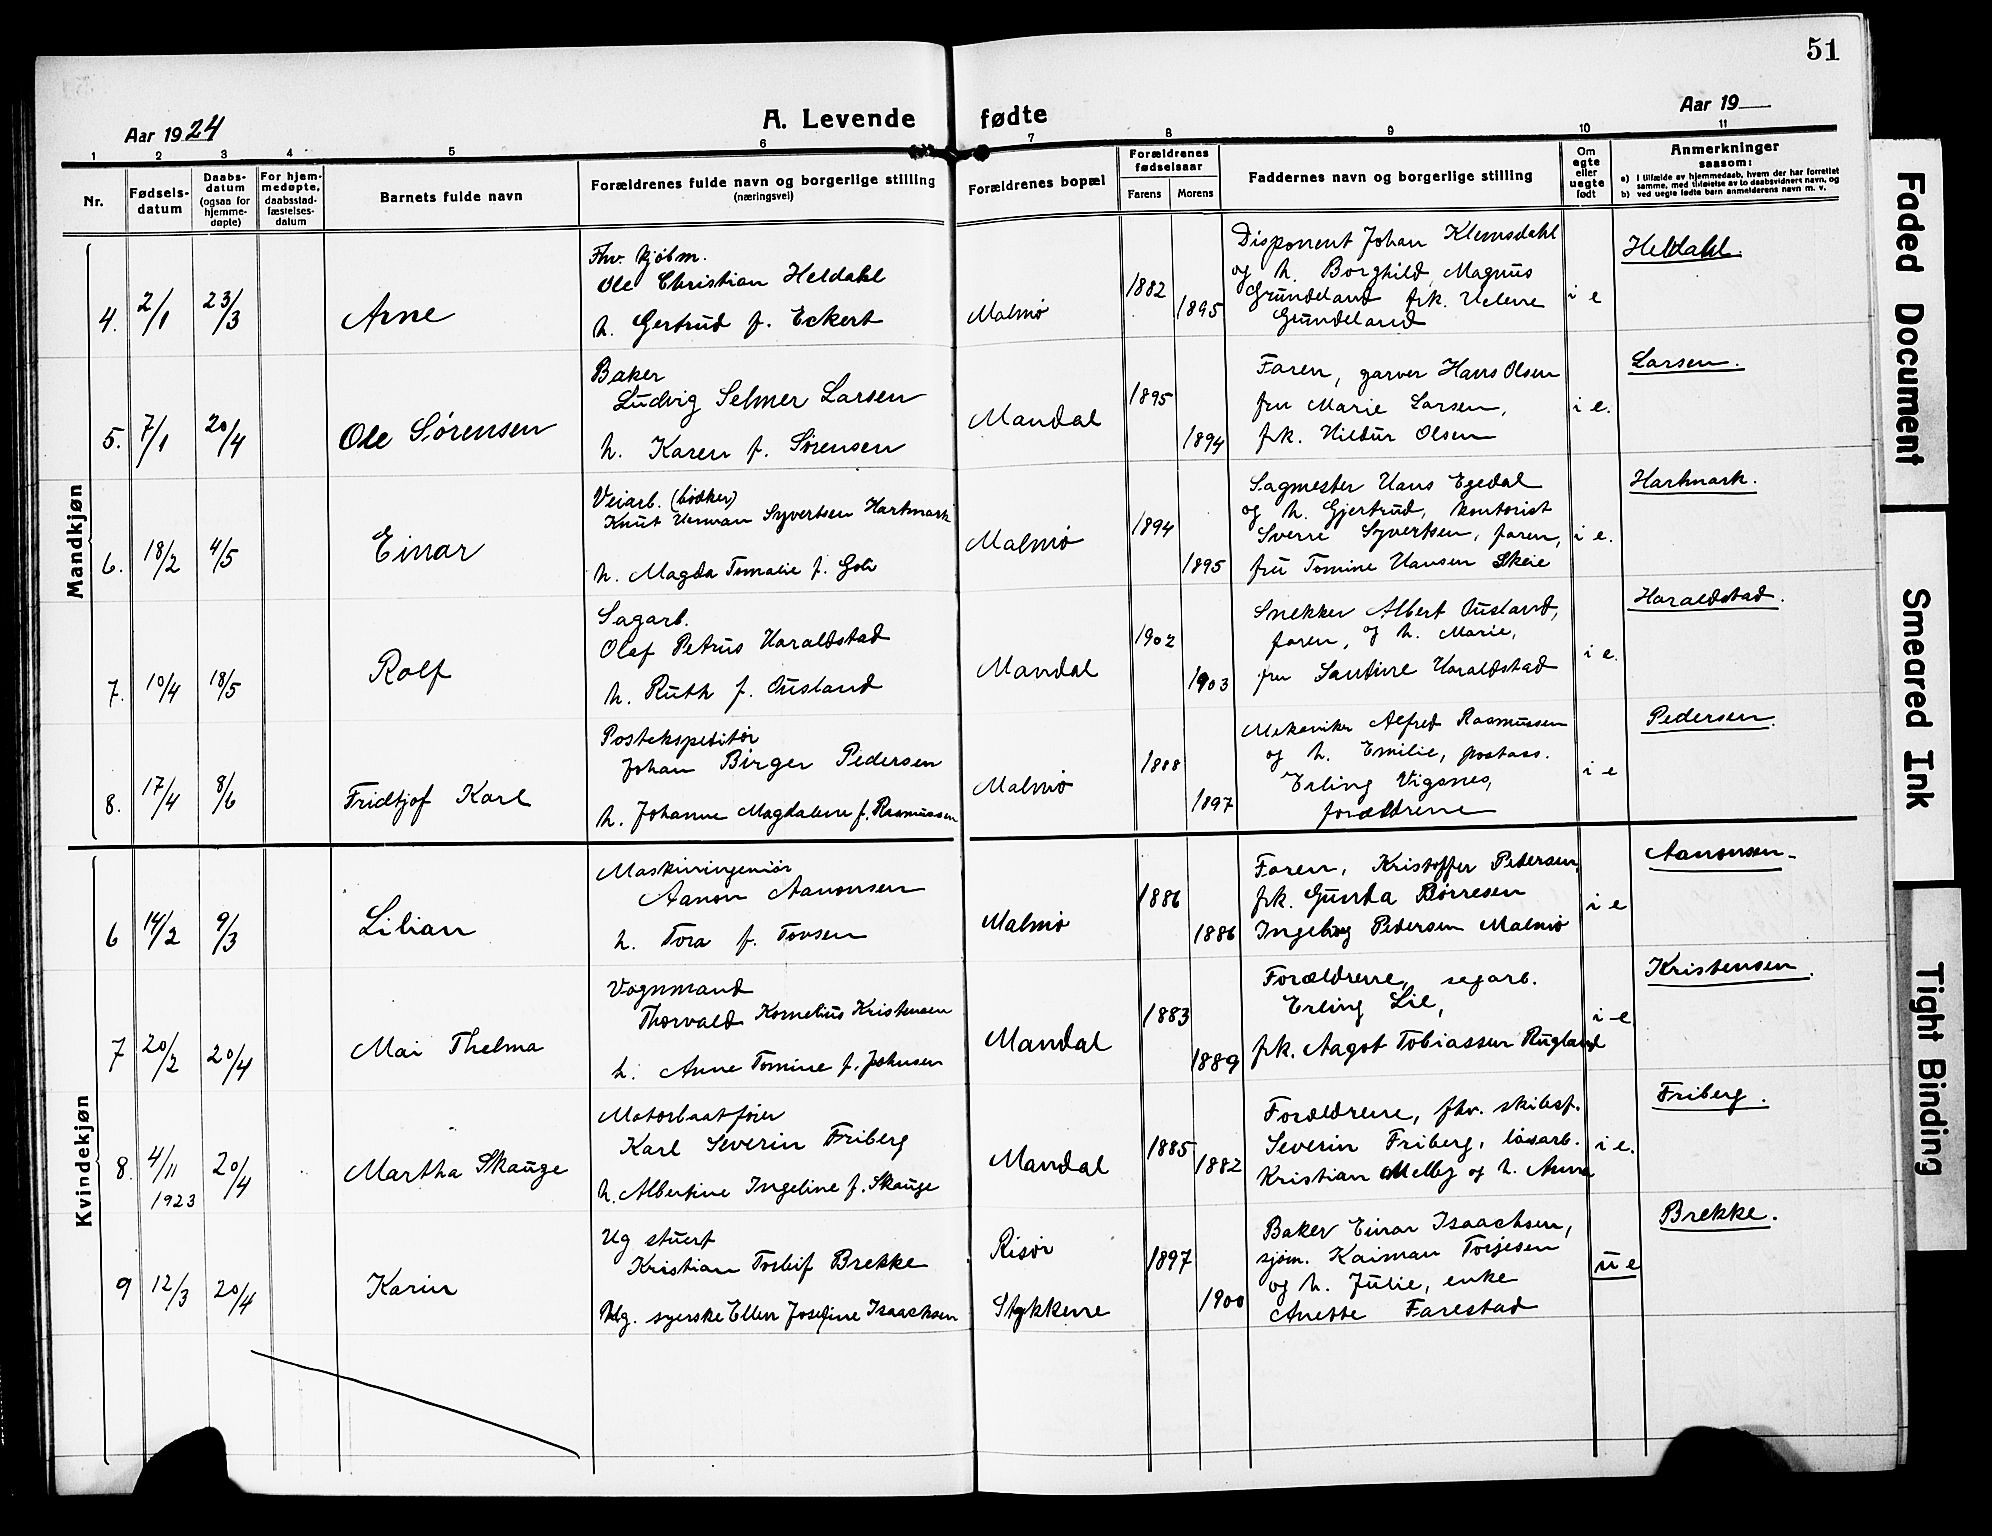 51
Aar 1924
A. Levende fødte
Aar 19
1 2 3 4 5 6 7 8 9 10 11
Nr.
Fødsels-
datum
Daabs-
datum
(ogsaa for
hjemme-
døpte)
For hjem-
medøpte,
daabsstad-
fæstelses-
datum
Barnets fulde navn
Forældrenes fulde navn og borgerlige stilling
(næringsvei)
Forældrenes bopæl
Forældrenes
fødselsaar
Farens Morens
Faddernes navn og borgerlige stilling
Om
egte
eller
uegte
født
Anmerkninger
saasom:
a) i tilfælde av hjemmedaab, hvem der har forrettet
samme, med tilføielse av to daabsvidners navn, og
b) ved uegte fødte barn anmelderens navn m. v.
Mandkjøn
4. 2/1 23/3 Arne
Fhv. kjøbm.
Ole Christian Heldahl
h. Gertrud f. Eckert
Malmø
1882
1895
Disponent Johan Klemsdahl
og h. Borghild, Magnus
Grundeland frk. Helene
Grundeland
i e
Heldahl.
5. 7/1 20/4 Ole Sørensen
Baker
Ludvig Selmer Larsen
h. Karen f. Sørensen
Mandal
1895
1894
Faren, garver Hans Olsen
fru Marie Larsen,
frk. Hildur Olsen
i e.
Larsen.
6. 18/2 4/5 Einar
Veiarb. (bødker)
Knut Herman Syvertsen Hartmark
h. Magda Tomalie f.
Malmø
1894
1895
Sagmester Hans Egedal
og h. Gjertrud, kontorist
Sverre Syvertsen, faren,
fru Tomine Hansen Skeie
i e.
Hartmark.
7. 10/4 18/5 Rolf
Sagarb.
Olaf Petrus Haraldstad
h. Ruth f. Ousland
Mandal
1902
1903
Snekker Albert Ousland,
faren, og h. Marie,
fru Santine Haraldstad
i e.
Haraldstad.
8. 17/4 8/6 Fridtjof Karl
Postekspeditør
Johan Birger Pedersen
h. Johanne Magdalene f. Rasmussen
Malmø
1888
1897
Mekaniker Alfred Rasmussen
og h. Emilie, postass.
Erling Vigsnes,
forældrene
i e
Pedersen.
Kvindekjøn
6 14/2 9/3 Lilian
Maskiningeniør
Aanon Aanonsen
h. Tora f. Tovsen
Malmø
1886
1886
Faren, Kristoffer Pedersen,
frk. Gunda Børresen
Ingeborg Pedersen Malmø
i e
Aanonsen
7 20/2 20/4 Mai Thelma
Vognmand
Thorvald Kornelius Kristensen
h. Anne Tomine f. Johnsen
Mandal
1883
1889
Forældrene, segarb.
Erling Lie,
frk. Aagot Tobiassen Rugland
i e
Kristensen.
8. 4/11 1923 20/4 Martha Skauge
Motorbaatfører
Karl Severin Friberg
h. Albertine Ingeline f. Skauge
Mandal
1885
1882
Forældrene, fhv. skibsf.
Severin Friberg, løsarb.
Kristian Melby og h. Anna
i e.
Friberg.
9 12/3 20/4 Karin
Ug stuert
Kristian Torleif Brekke
Ug. syerske Ellen Josefine Isaachsen
Risør
Stykkene
1897
1900
Baker Einar Isaachsen,
sjøm. Kaiman Torjesen
og h. Julie, enke
Anette Farestad
u e
Brekke.
Faded Document
Smeared Ink
Tight Binding